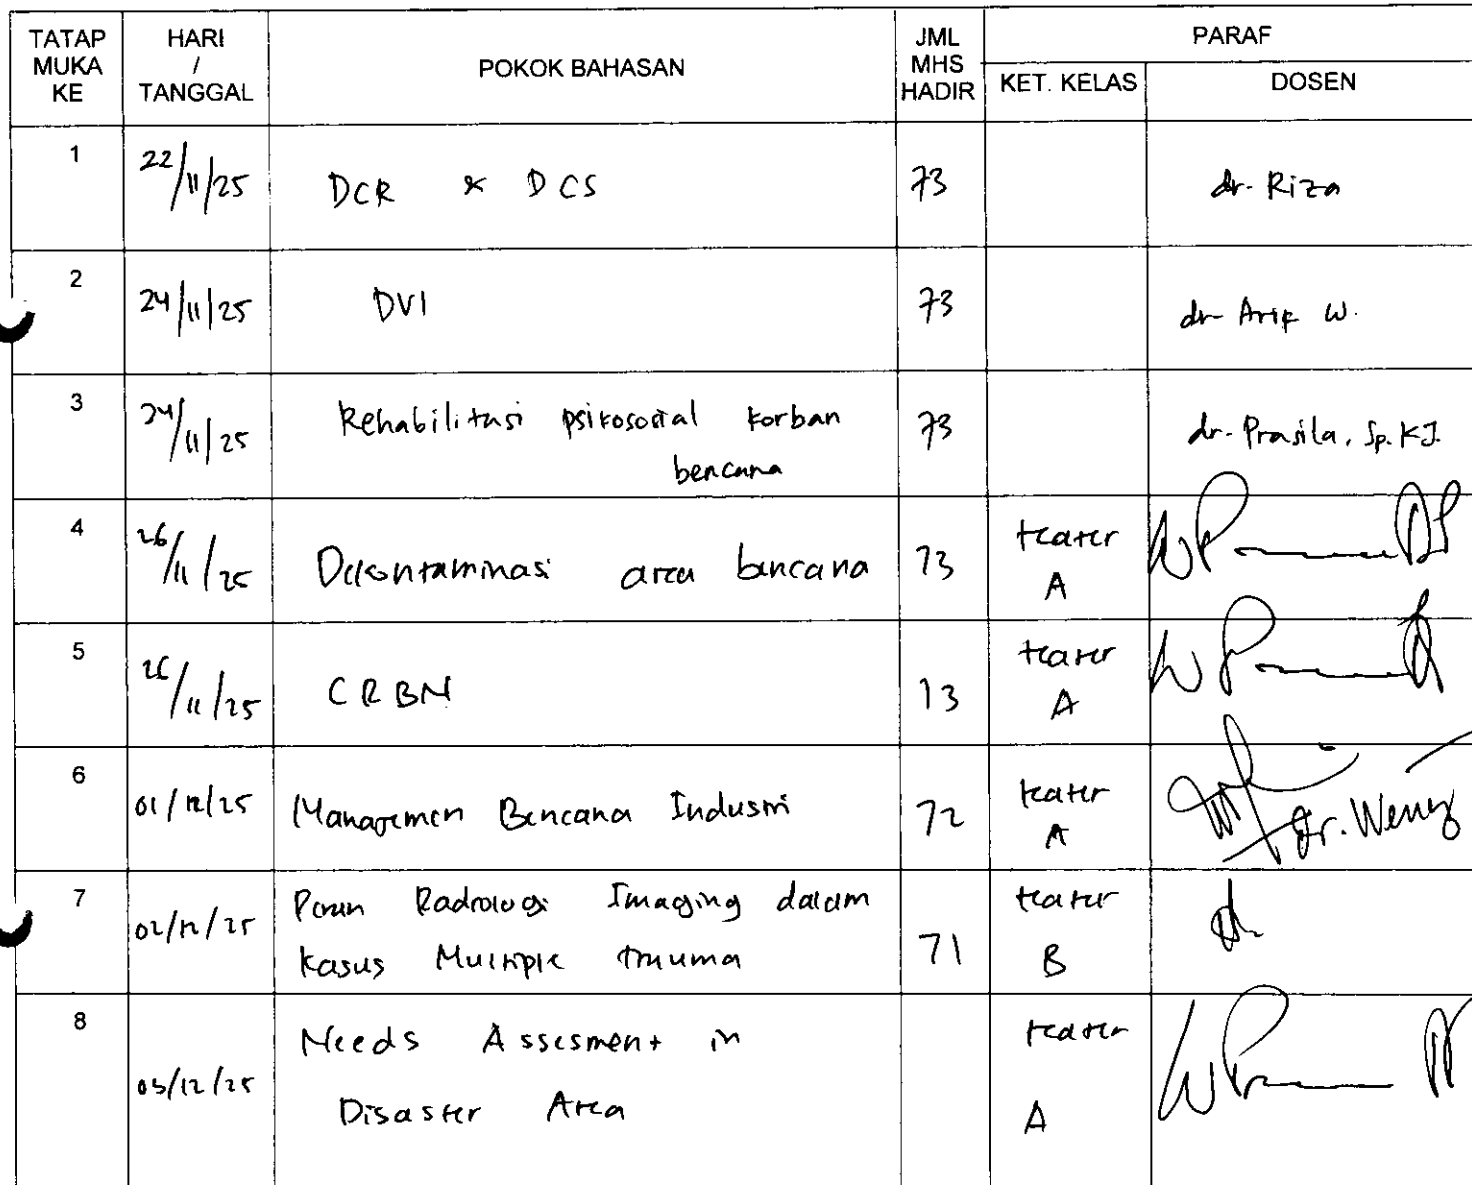 TATAP MUKA KE | HARI / TANGGAL | POKOK BAHASAN | JML MHS HADIR | PARAF
KET. KELAS | DOSEN
1 | 22/11/25 | DCR & DCS | 73 | | dr. Riza
2 | 24/11/25 | DVI | 73 | | dr. Arif W.
3 | 24/11/25 | Rehabilitasi psikososial korban | 73 | | dr. Prasila, Sp. KJ.
bencana
4 | 26/11/25 | Dekontaminasi area bencana | 73 | teater A
5 | 26/11/25 | CRBN | 13 | teater A
6 | 01/12/25 | Manajemen Bencana Industri | 72 | teater A | dr. Weny
7 | 02/12/25 | Peran Radiologi Imaging dalam | 71 | teater B
kasus Multiple trauma
8 | 03/12/25 | Needs Assesment in | | teater A
Disaster Area